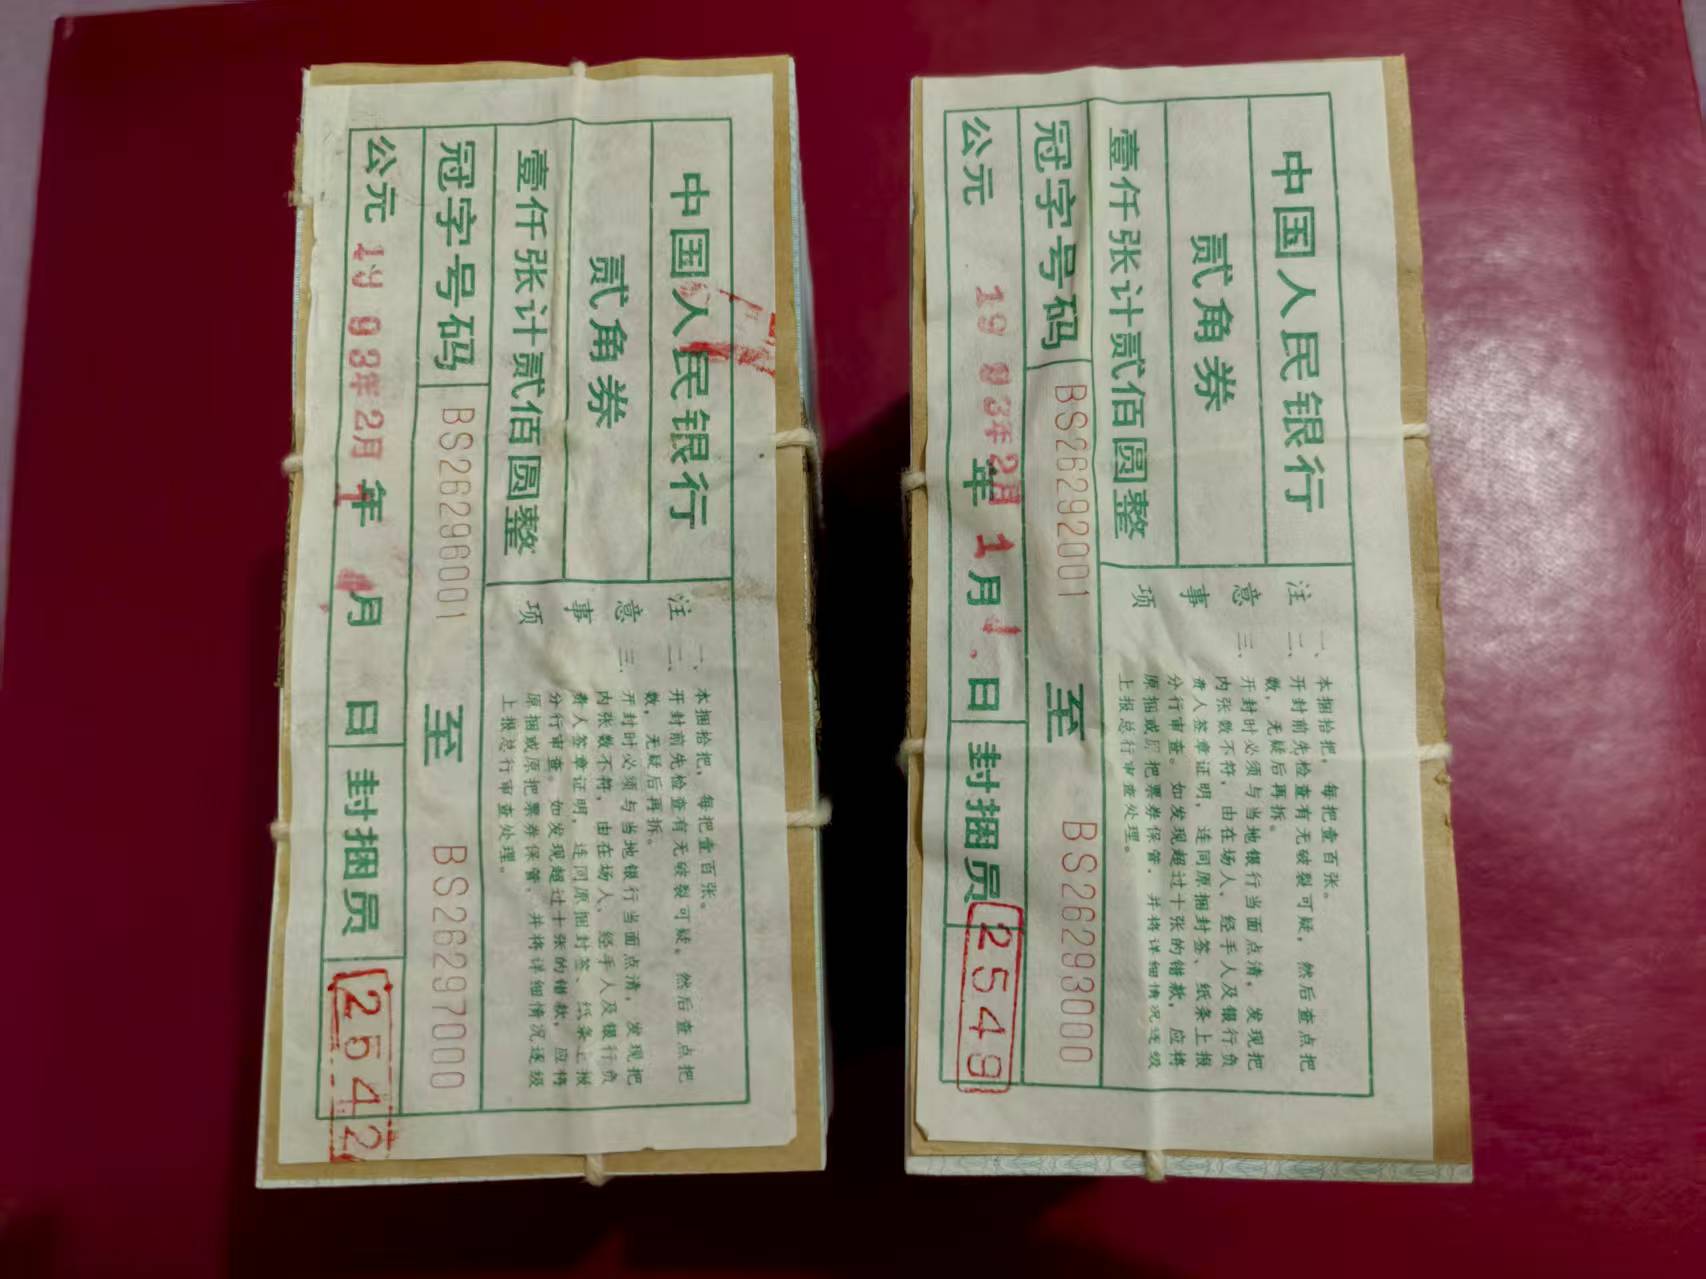 中国人民银行
贰角券
壹仟张计贰佰圆整
冠字号码 BS26296001 至 BS26297000
公元 1993年2月 年 月 日 封捆员 2542
注意事项
一、本捆拾把，每把壹百张。
二、开封前先检查有无破裂可疑，然后查点把
数，无疑后再拆。
三、开封时必须与当地银行当面点清，发现把
内张数不符，由在场人、经手人及银行负
责人签章证明，连同原捆封签、纸条上报
分行审查。如发现超过十张的错款，应将
原捆或原把票券保管，并将详细情况逐级
上报总行审查处理。
中国人民银行
贰角券
壹仟张计贰佰圆整
冠字号码 BS26292001 至 BS26293000
公元 1993年2月 年 1月 1日 封捆员 2549
注意事项
一、本捆拾把，每把壹百张。
二、开封前先检查有无破裂可疑，然后查点把
数，无疑后再拆。
三、开封时必须与当地银行当面点清，发现把
内张数不符，由在场人、经手人及银行负
责人签章证明，连同原捆封签、纸条上报
分行审查。如发现超过十张的错款，应将
原捆或原把票券保管，并将详细情况逐级
上报总行审查处理。